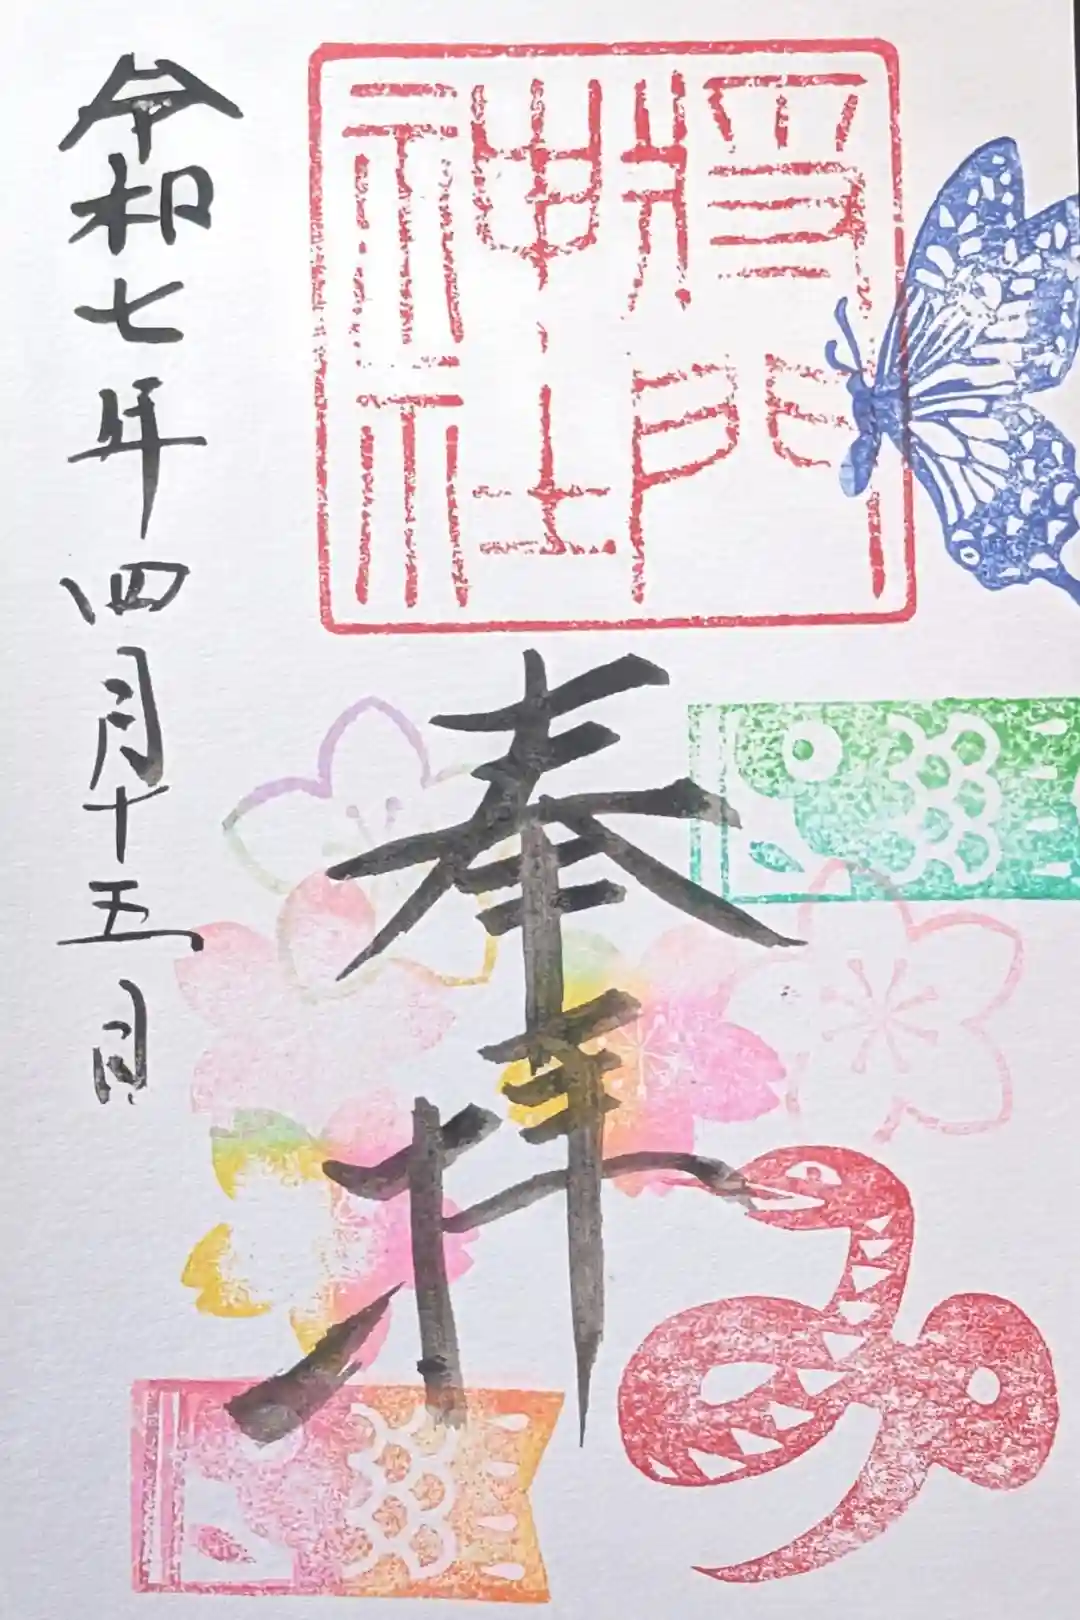 将門
神社
奉拝
令和七年四月十五日